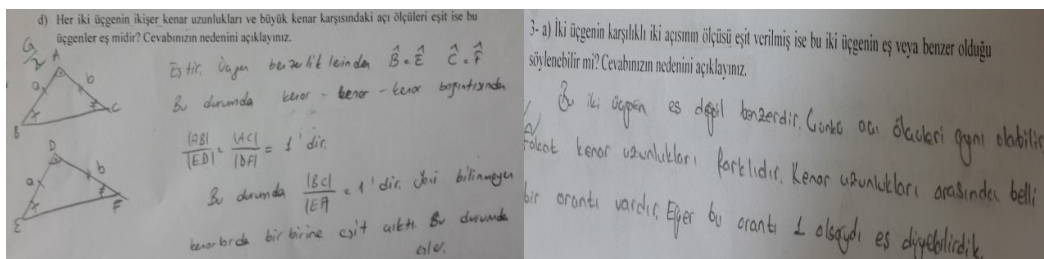 d) Her iki üçgenin ikişer kenar uzunlukları ve büyük kenar karşısındaki açı ölçüleri eşit ise bu
üçgenler eş midir? Cevabınızın nedenini açıklayınız.
A
a
b
B
C
D
a
b
E
F
Eştir. Üçgen benzerlik B̂ = Ê Ĉ = F̂
Bu durumda kenar - kenar - kenar bağıntısından
|AB| / |ED| = |AC| / |DF| = 1'dir.
Bu durumda |BC| / |EF| = 1'dir. Yani bilinmeyen
kenarlarda bir birine eşit çıktı. Bu durumda
eşler.
3- a) İki üçgenin karşılıklı iki açısının ölçüsü eşit verilmiş ise bu iki üçgenin eş veya benzer olduğu
söylenebilir mi? Cevabınızın nedenini açıklayınız.
Bu iki üçgen eş değil benzerdir. Çünkü açı ölçüleri aynı olabilir
fakat kenar uzunlukları farklıdır. Kenar uzunlukları arasından belli
bir orantı vardır. Eğer bu orantı 1 olsaydı eş diyebilirdik.